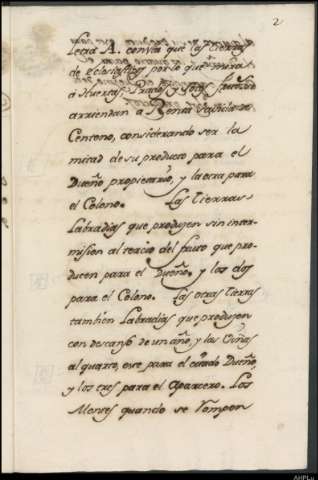 2
Letra A. consta que las tierras
de Eclesiasticos por lo que mira
a Huertas, Prados y Sotos
arriendan a Renta
Centeno, considerando ser la
mitad de su producto para el
Dueño propietario, y la otra para
el Colono. Las Tierras
Labradias que produzen sin inter-
mision al tercio del fruto que pro-
ducen para el Dueño. y los dos
para el Colono. Las otras Tierras
tambien Labradias que produzen
con descanso de un año, y las Viñas
al quarto, este para el citado Dueño,
y los tres para el Aparcero. Los
Montes quando se Rompen
AHPLu